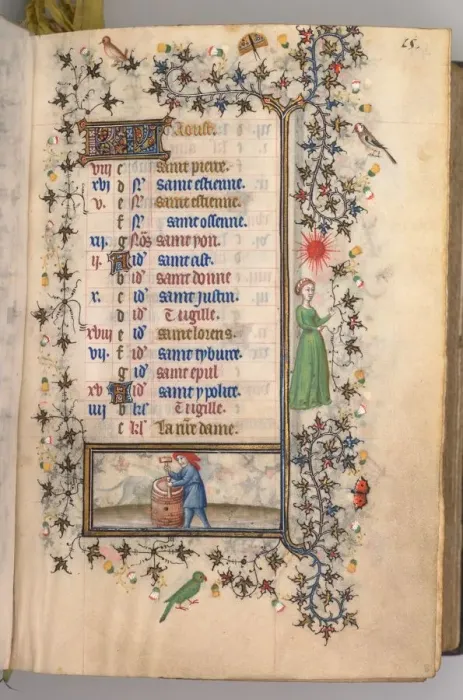 25.
KL Aoust.
viii c saint pierre.
xvi d N̄ saint estienne.
v. e N̄ saint estienne.
f N̄ saint offenne.
xii. g Nōs saint yon.
ii. A id' saint aist.
b id' saint donne
x. c id' saint iustin.
d id' Uigille.
xviii e id' saint lorens.
vii. f id' saint tyburce.
g id' saint epul
xv A id' saint ypolite.
iiii b kl' Uigille.
c kl' La n̄re dame.